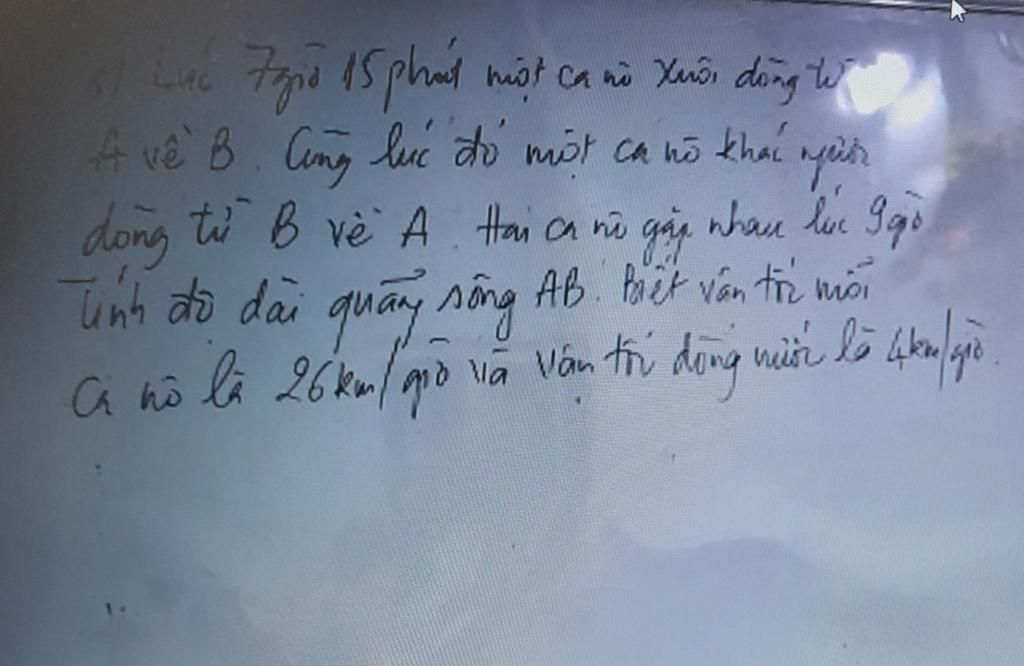 5) Lúc 7giờ 15 phút một ca nô xuôi dòng từ
A về B. Cũng lúc đó một ca nô khác ngược
dòng từ B về A. Hai ca nô gặp nhau lúc 9giờ
Tính độ dài quãng sông AB. Biết vận tốc mỗi
ca nô là 26km/giờ và vận tốc dòng nước là 4km/giờ.